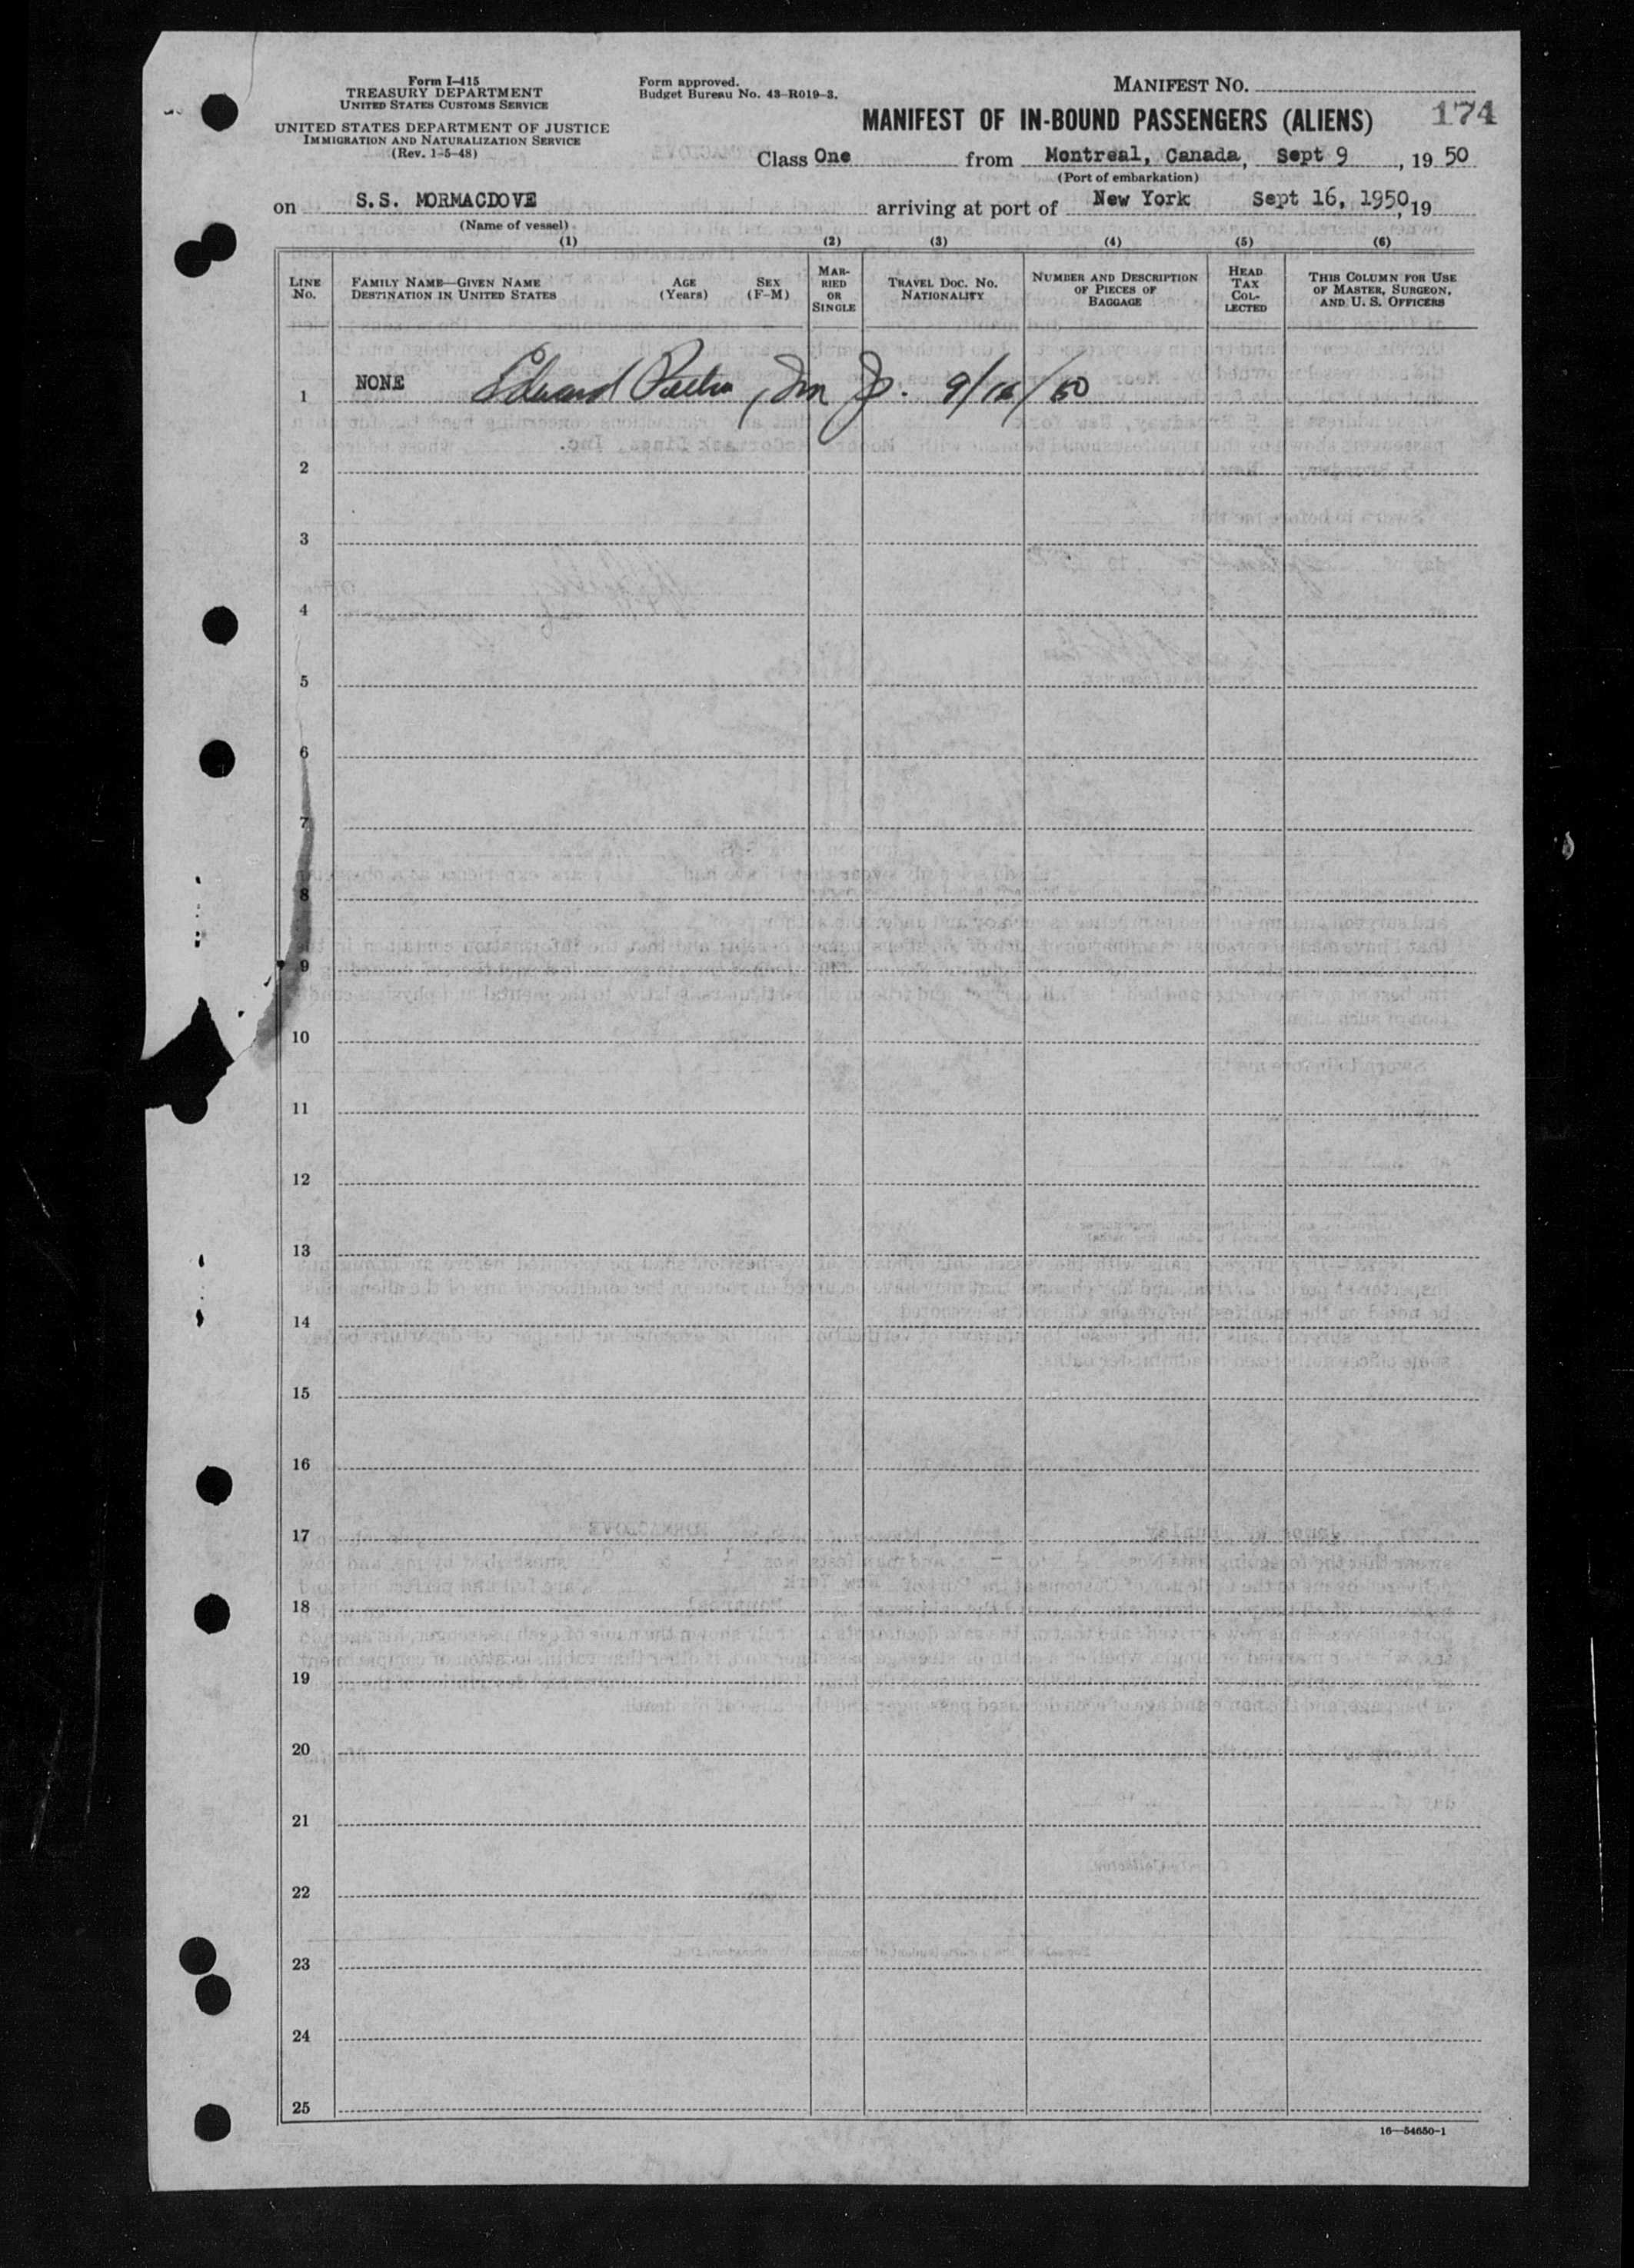 Form I-415
TREASURY DEPARTMENT
UNITED STATES CUSTOMS SERVICE
UNITED STATES DEPARTMENT OF JUSTICE
IMMIGRATION AND NATURALIZATION SERVICE
(Rev. 1-5-48)
Form approved.
Budget Bureau No. 43-R019-3.
MANIFEST NO.
MANIFEST OF IN-BOUND PASSENGERS (ALIENS) 174
Class One from Montreal, Canada, Sept 9, 19 50
(Port of embarkation)
on S.S. MORMACDOVE arriving at port of New York Sept 16, 1950, 19
(Name of vessel)
(1) (2) (3) (4) (5) (6)
LINE No.
FAMILY NAME—GIVEN NAME
DESTINATION IN UNITED STATES
AGE (Years)
SEX (F-M)
MAR-
RIED
OR
SINGLE
TRAVEL DOC. NO.
NATIONALITY
NUMBER AND DESCRIPTION
OF PIECES OF
BAGGAGE
HEAD
TAX
COL-
LECTED
THIS COLUMN FOR USE
OF MASTER, SURGEON,
AND U. S. OFFICERS
1 NONE Edward 9/16/50
2
3
4
5
6
7
8
9
10
11
12
13
14
15
16
17
18
19
20
21
22
23
24
25
16—54650-1